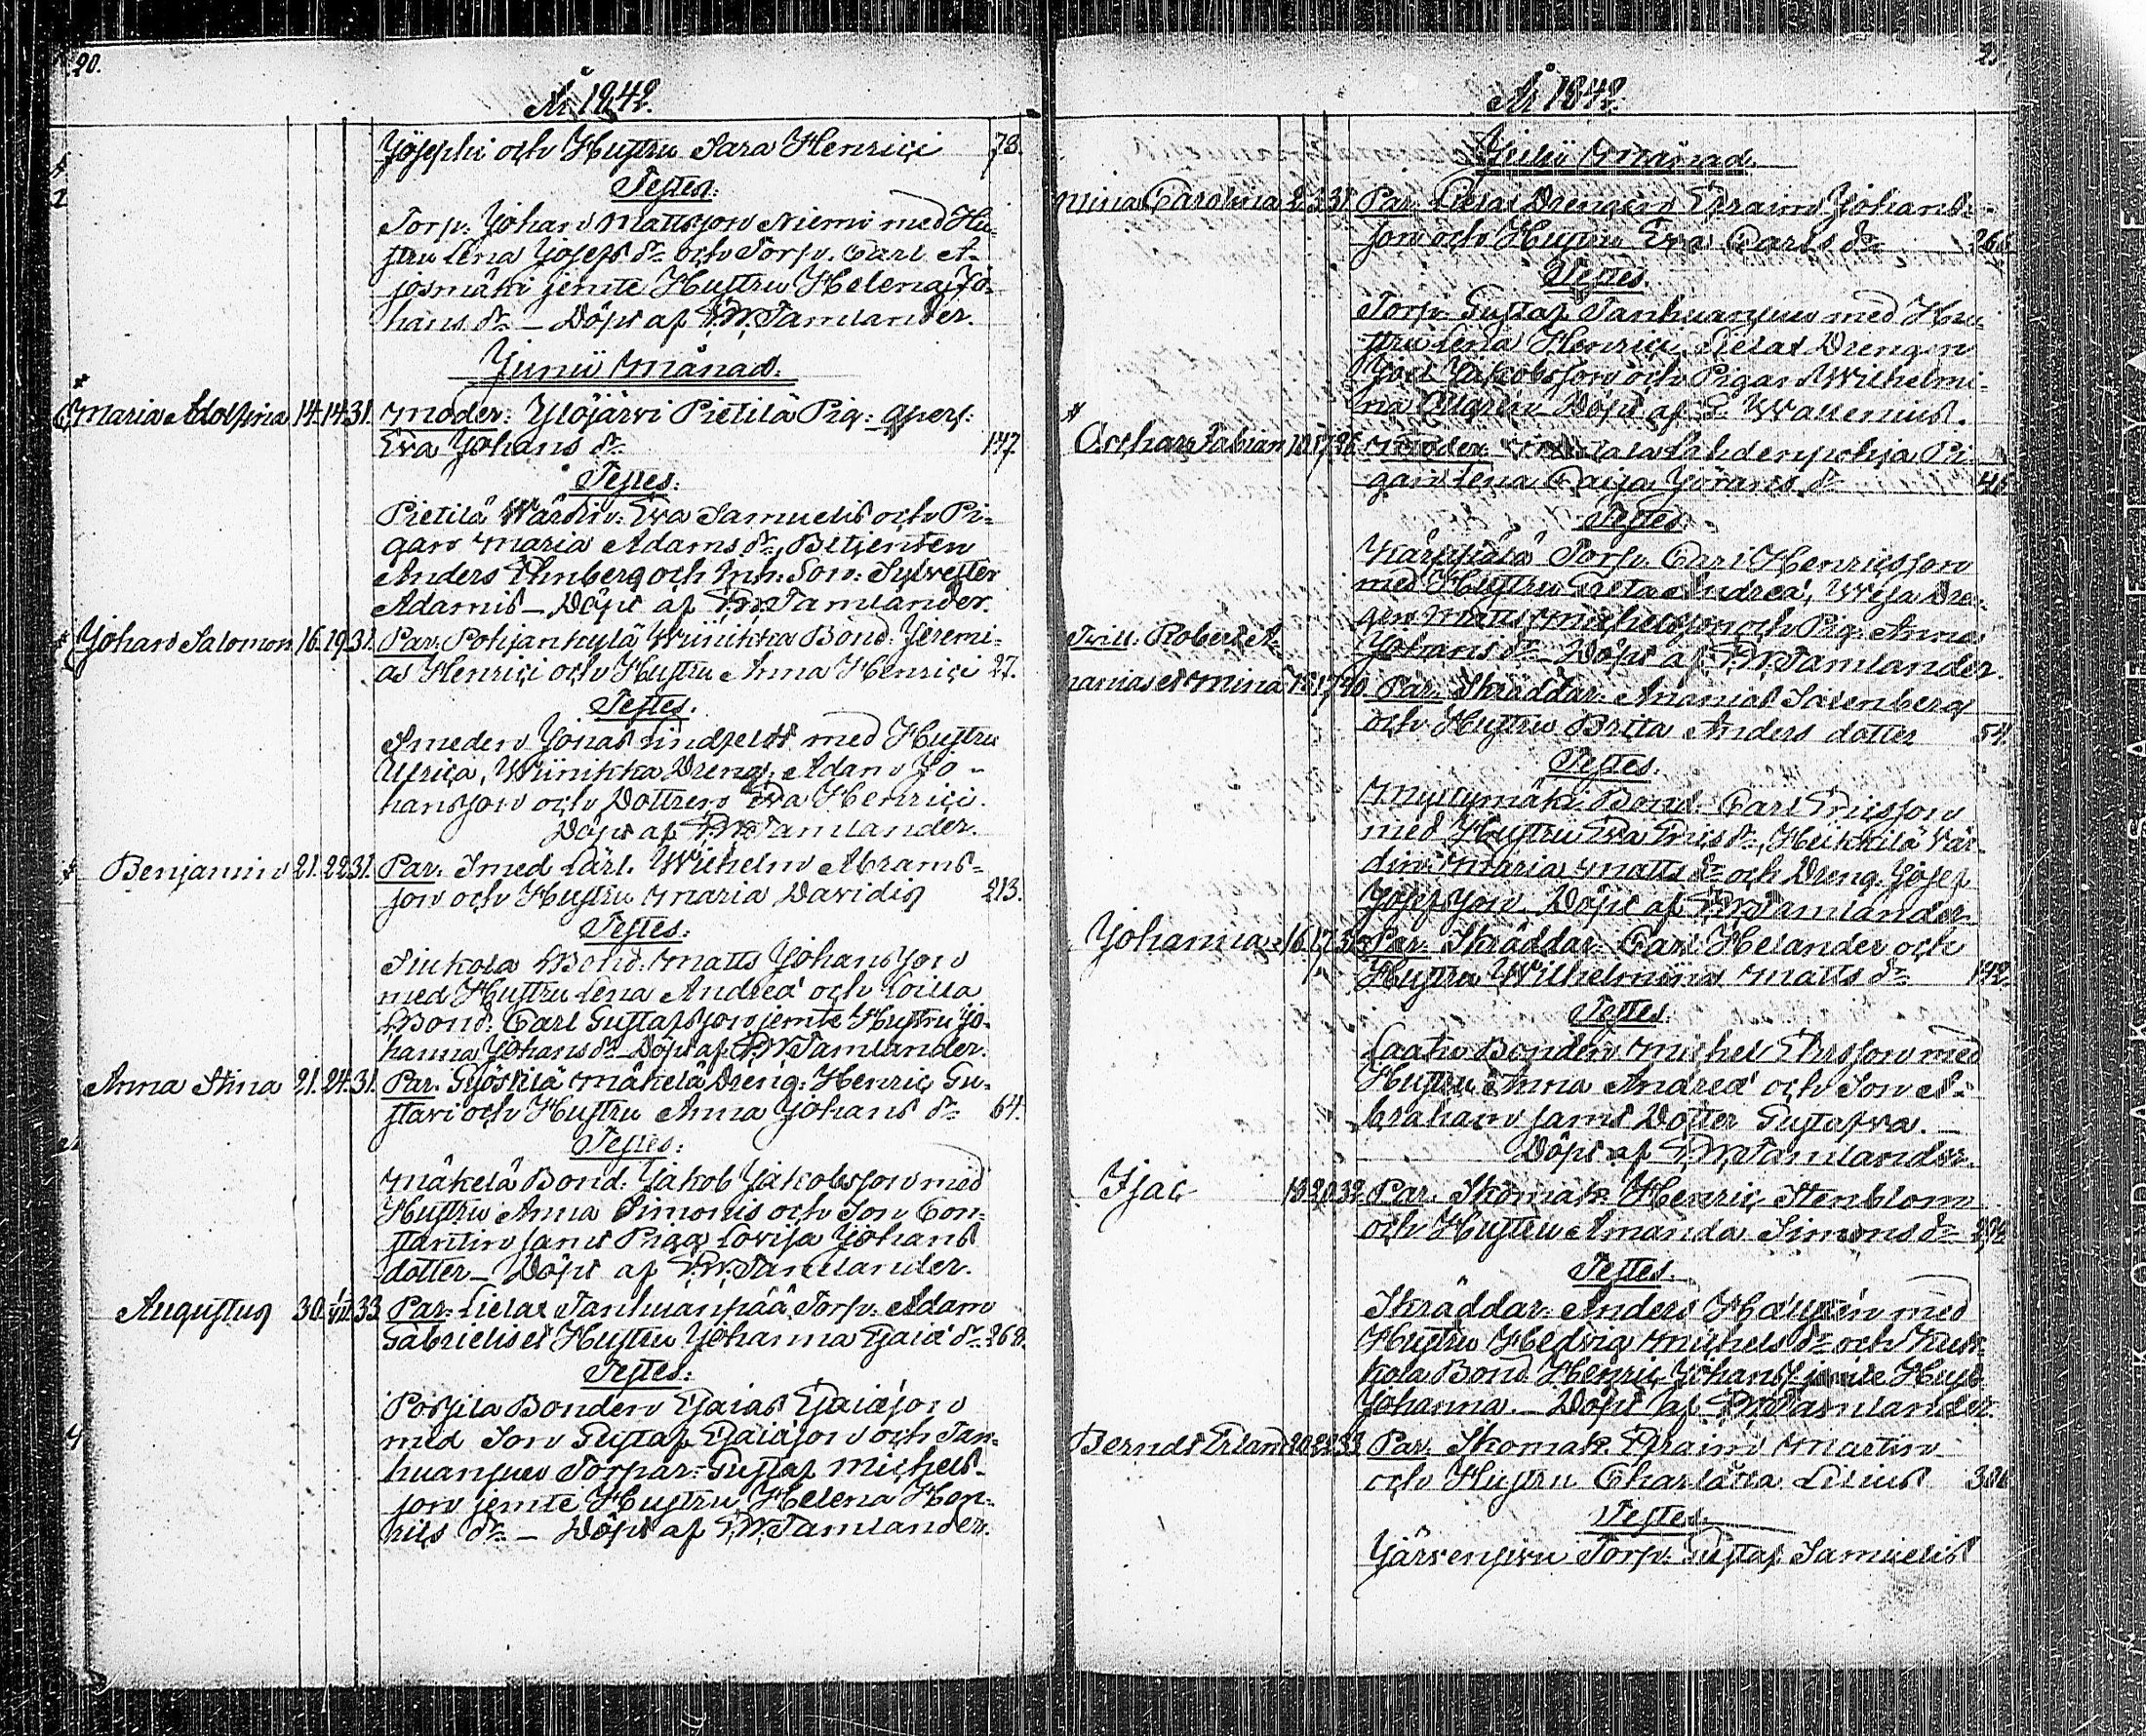 20.
År 1842.
Josephi och Hustru Sara Henrici 78.
Testes:
Torp: Johan Mattsson Niemi med Hu-
stru Lena Josefs dr och Torp. Carl A-
josmäki jemte Hustru Helena Jo-
hans dr – Döpt af P.W. Tamlander.
Junii Månad.
Maria Adolfina 14. 14. 31. Moder: Ylöjärvi Pietilä Pig:
Eva Johans dr 147
Testes:
Pietilä Wärdin: Eva Samuelis och Pi-
gan Maria Adams dr, Betjenten
Anders och Inh: Son: Sylvester
Adamis – Döpt af P.W. Tamlander.
Johan Salomon 16. 19. 31. Par: Pohjankylä Wiinikka Bond: Jeremi-
as Henrici och Hustru Anna Henrici 27.
Testes.
Smeden Jonas Lindfeldt med Hustru
Ulrica, Wiinikka Dreng: Adam Jo-
hansson och Dottren Eva Henrici.
Döpt af P.W. Tamlander.
Benjamin 21. 22. 31. Par. Smed Lärl. Wilhelm Abrams-
son och Hustru Maria Davidis 213.
Testes:
Siukola Bond: Matts Johansson
med Hustru Lena Andreæ och Loilla
Bond: Carl Gustafsson jemte Hustru Jo-
hanna Johans dr Döpt af P.W. Tamlander.
Anna Stina 21. 24. 31. Par. Mäkelä Dreng: Henric Gu-
stavi och Hustru Anna Johans dr 64.
Testes:
Mäkelä Bond: Jakob Jakobsson med
Hustru Anna Simonis och Son Con-
stantin samt Piga Lovisa Johans
dotter – Döpt af P.W. Tamlander.
Augustus 30. 1/VII. 33. Par: Lielax Tanhuanpää Torp: Adam
Gabrielis et Hustru Johanna Esaiæ dr 268.
Testes:
Possila Bonden Esaias Esaiæson
med Son Gustaf Esaiæson och Tan-
huanpää Torpar: Gustaf Michels-
son jemte Hustru Helena Hen-
rics dr – Döpt af P.W. Tamlander.
År 1842.
Julii Månad.
Mina Carolina 2. 3. 31. Par. Lielax Drengen Efraim Johans-
son och Hustru Eva Carls dr 266
Testes.
Torp. Gustaf Tanhuanpää med Hu-
stru Lena Henrici, Lielax Drengen
Joel Jakobsson och Pigan Wilhelmi-
na Döpt af L. Wallenius.
Fabian Moder: Lahdenpohja Pi-
gan Lena Caisa Jörans dr 46
Testes.
Torp. Carl Henricsson
med Hustru Greta Andreæ, Dre-
gen Matts Michelsson och Pig: Anna
Johans dr – Döpt af P.W. Tamlander.
Trill. Robert A-
nanias et Mina Par. Skräddar: Ananias Salenberg
och Hustru Brita Anders dotter 54.
Testes.
Myllymäki Bond: Carl Ericsson
med Hustru Eva Erics dr, Heikkilä Vär-
din: Maria Matts dr och Dreng. Josef
Josefsson. Döpt af P.W. Tamlander
Johanna 16. 17. Par. Skräddar: Carl Helander och
Hustru Wilhelmina Matts dr 142.
Testes.
Laato Bonden Michel Ersson med
Hustru Anna Andreæ och Son A-
braham samt Dotter Gustafva. –
Döpt af P.W. Tamlander.
Isac 19. 20. 32. Par. Skomak: Henric Stenblom
och Hustru Amanda Simons dr
Testes.
Skräddar: Anders med
Hustru Hedvig Michels dr och
kola Bond Henric Johanss jemte Hust.
Johanna. – Döpt af P.W. Tamlander.
Bernd Erland 20. 22. 33. Par. Skomak. Efraim Martin
och Hustru Charlotta Lilius
Testes.
Järvenpää Torp: Gustaf Samuelis